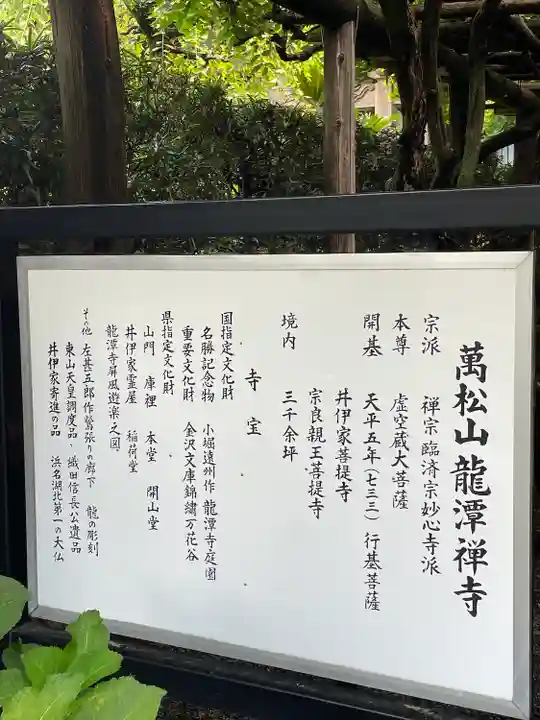 萬松山龍潭禅寺
宗派 禅宗臨済宗妙心寺派
本尊 虚空蔵大菩薩
開基 天平五年(七三三)行基菩薩
井伊家菩提寺
宗良親王菩提寺
境内 三千余坪
寺宝
国指定文化財
名勝記念物 小堀遠州作龍潭寺庭園
重要文化財 金沢文庫錦繍万花谷
県指定文化財
山門 庫裡 本堂 開山堂
井伊家霊屋 稲荷堂
龍潭寺屏風遊楽之図
その他 左甚五郎作鶯張りの廊下 龍の彫刻
東山天皇調度品、織田信長公遺品
井伊家寄進の品 浜名湖北第一の大仏